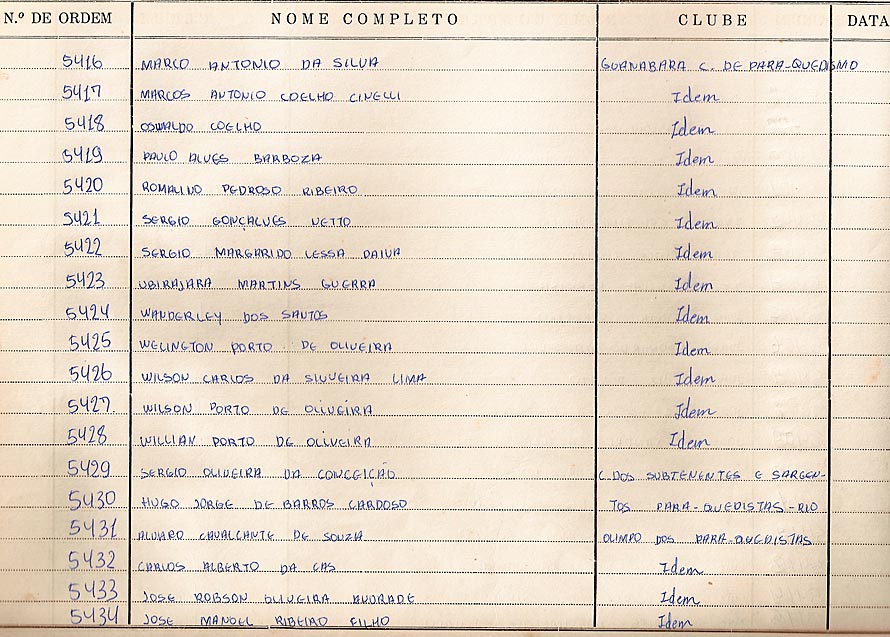 N.º DE ORDEM NOME COMPLETO CLUBE DATA
5416 MARCO ANTONIO DA SILVA GUANABARA C. DE PARA-QUEDISMO
5417 MARCOS ANTONIO COELHO CINELLI Idem
5418 OSWALDO COELHO Idem
5419 PAULO ALVES BARBOZA Idem
5420 ROMALINO PEDROSO RIBEIRO Idem
5421 SERGIO GONÇALVES NETTO Idem
5422 SERGIO MARGARIDO LESSA DAIVA Idem
5423 UBIRAJARA MARTINS GUERRA Idem
5424 WANDERLEY DOS SANTOS Idem
5425 WELINGTON PORTO DE OLIVEIRA Idem
5426 WILSON CARLOS DA SILVEIRA LIMA Idem
5427 WILSON PORTO DE OLIVEIRA Idem
5428 WILLIAN PORTO DE OLIVEIRA Idem
5429 SERGIO OLIVEIRA DA CONCEIÇÃO C. DOS SUBTENENTES E SARGEN-
5430 HUGO JORGE DE BARROS CARDOSO TOS PARA-QUEDISTAS-RIO
5431 ALVARO CAVALCANTE DE SOUZA OLIMPO DOS PARA-QUEDISTAS
5432 CARLOS ALBERTO DA CAS Idem
5433 JOSE ROBSON OLIVEIRA ANDRADE Idem
5434 JOSE MANOEL RIBEIRO FILHO Idem